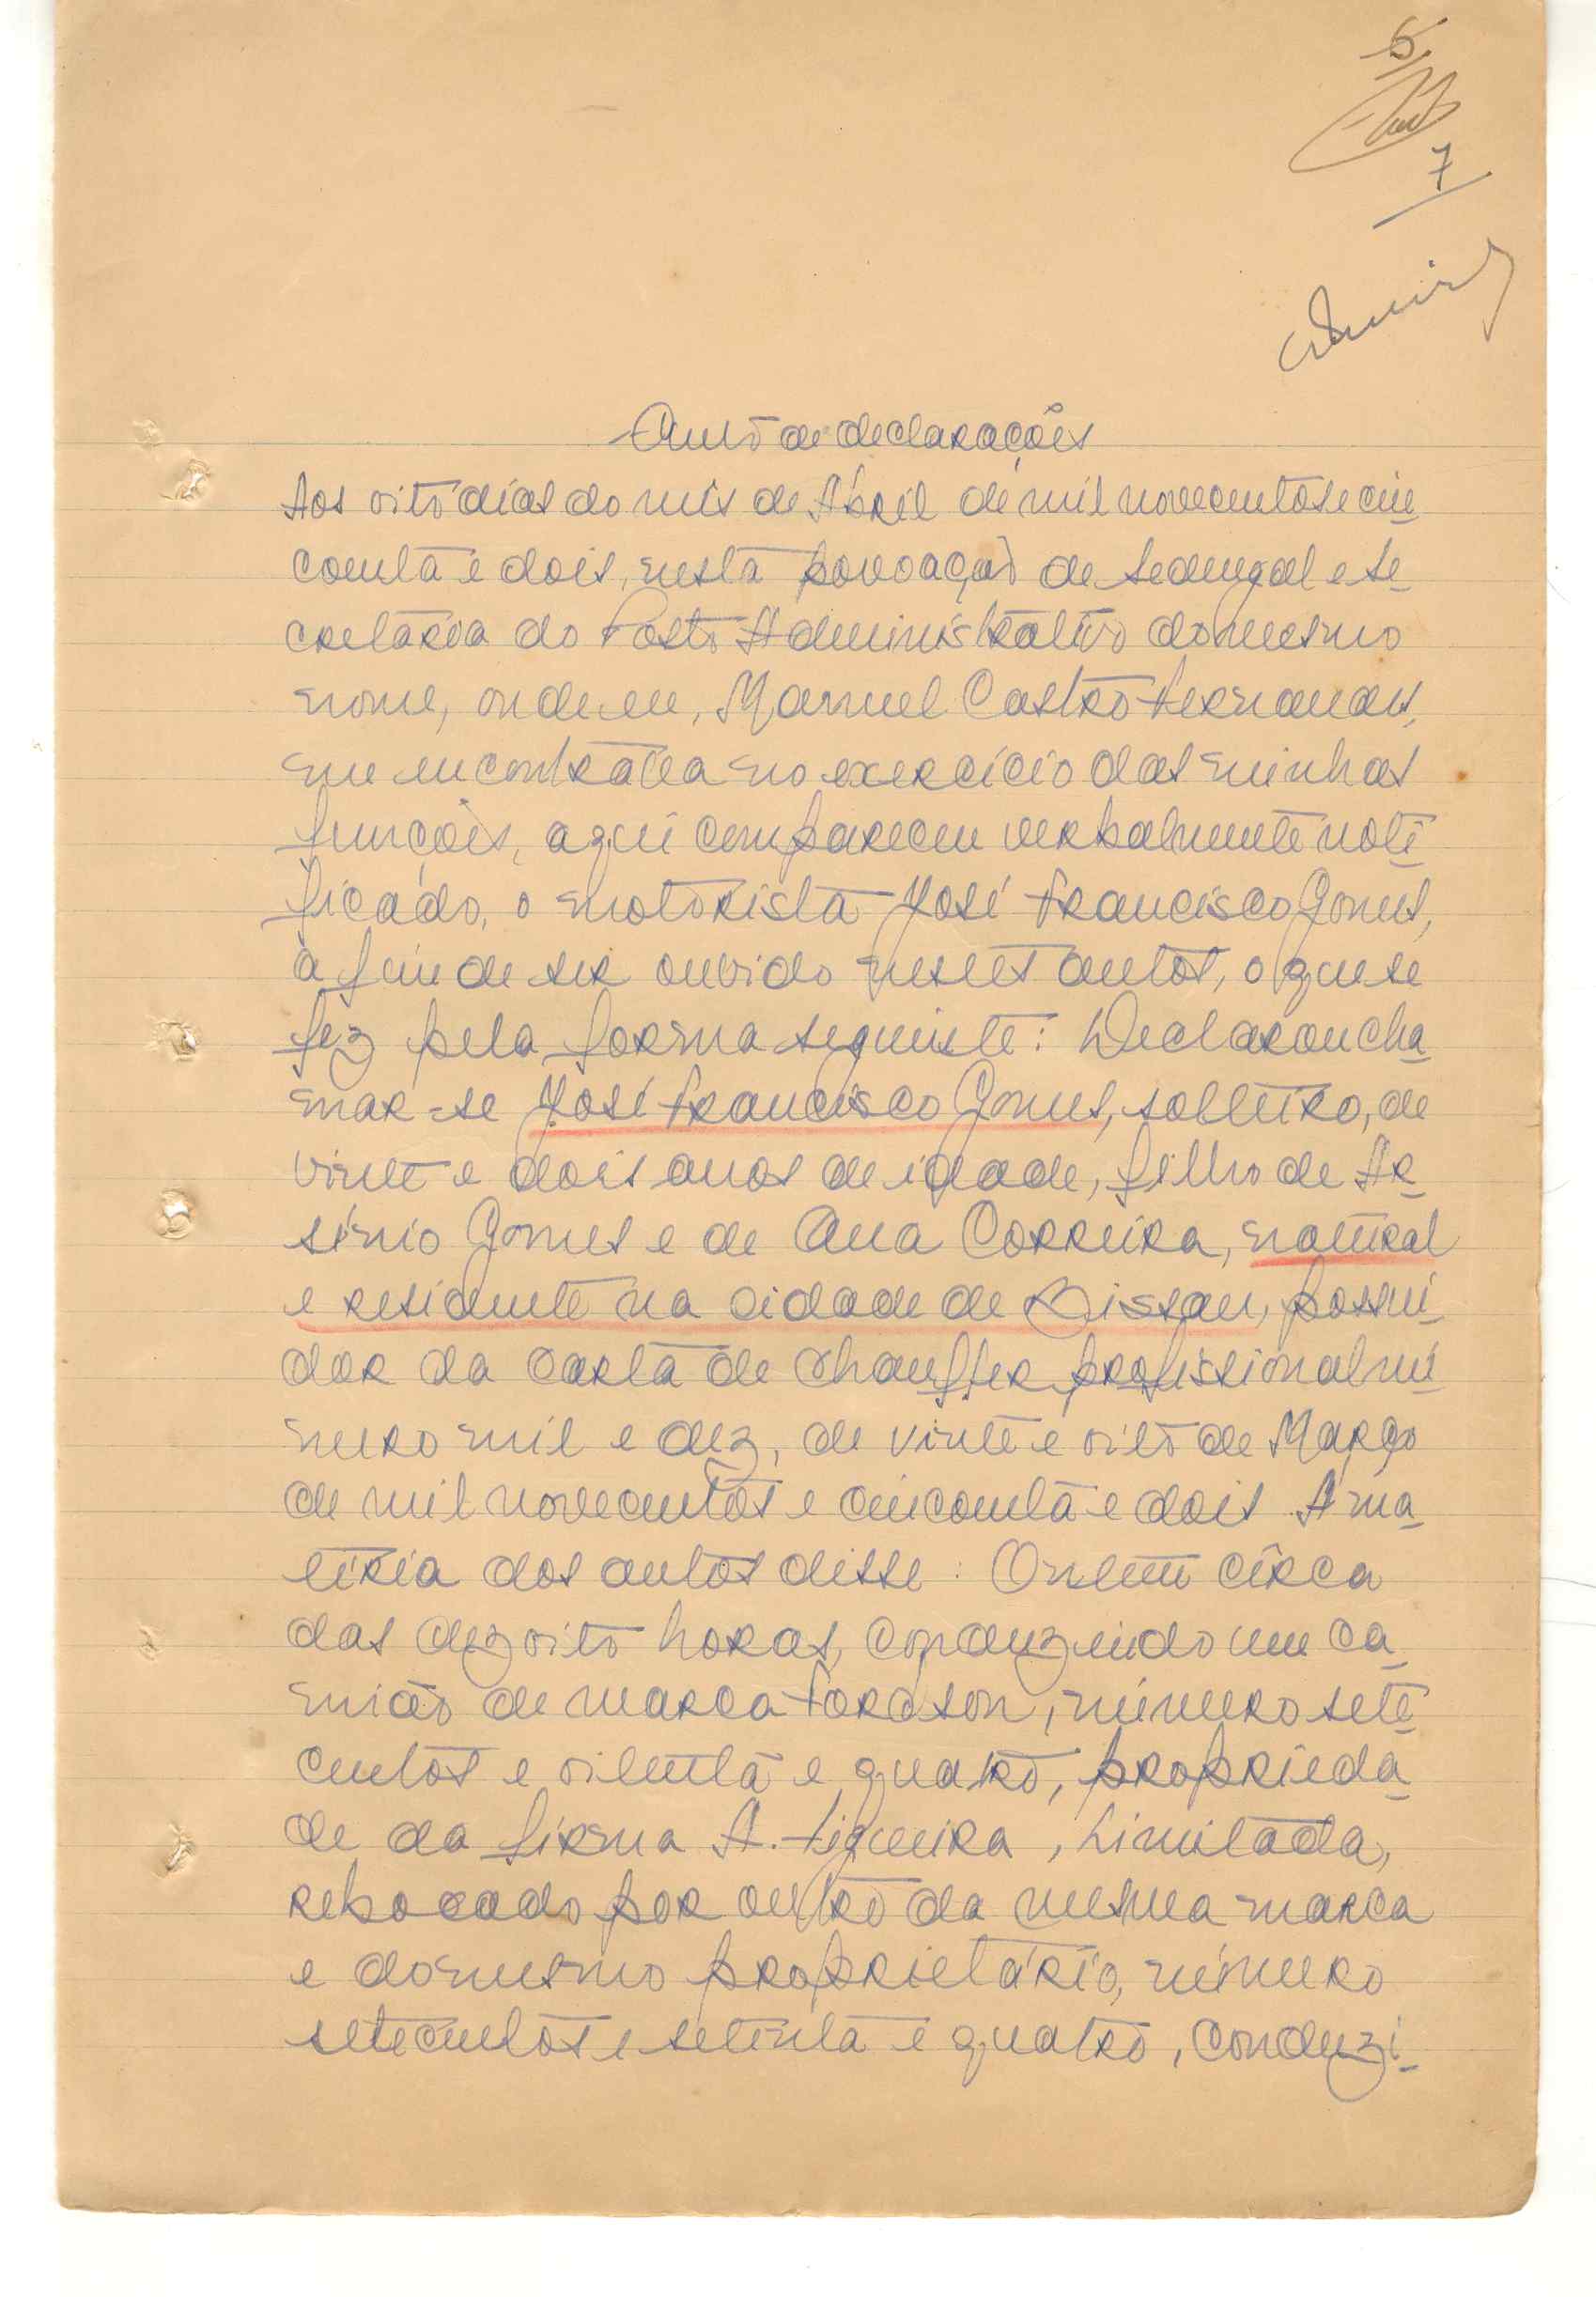 5
7
Auto de declarações
Aos oito dias do mês de Abril de mil novecentos e cin_
coenta e dois, nesta povoação de Sedengal e Se_
cretaria do Posto Administrativo do mesmo
nome, onde eu, Manuel Castro Fernandes,
me encontrava no exercício das minhas
funções, aqui compareceu verbalmente noti_
ficado, o motorista José Francisco Gomes,
a fim de ser ouvido nestes autos, o que se
fez pela forma seguinte: Declarou cha_
mar-se José Francisco Gomes, solteiro, de
vinte e dois anos de idade, filho de Ar_
sénio Gomes e de Ana Correira, natural
e residente na cidade de Bissau, possui_
dor da carta de chauffer profissional nú_
mero mil e dez, de vinte e oito de Março
de mil novecentos e cincoenta e dois. A ma_
téria dos autos disse: Ontem cêrca
das dezoito horas, conduzindo um ca_
mião de marca Fordson, número sete_
centos e oitenta e quatro, proprieda_
de da firma A. Figueira, Limitada,
rebocado por outro da mesma marca
e do mesmo proprietário, número
setecentos e setenta e quatro, conduzi_